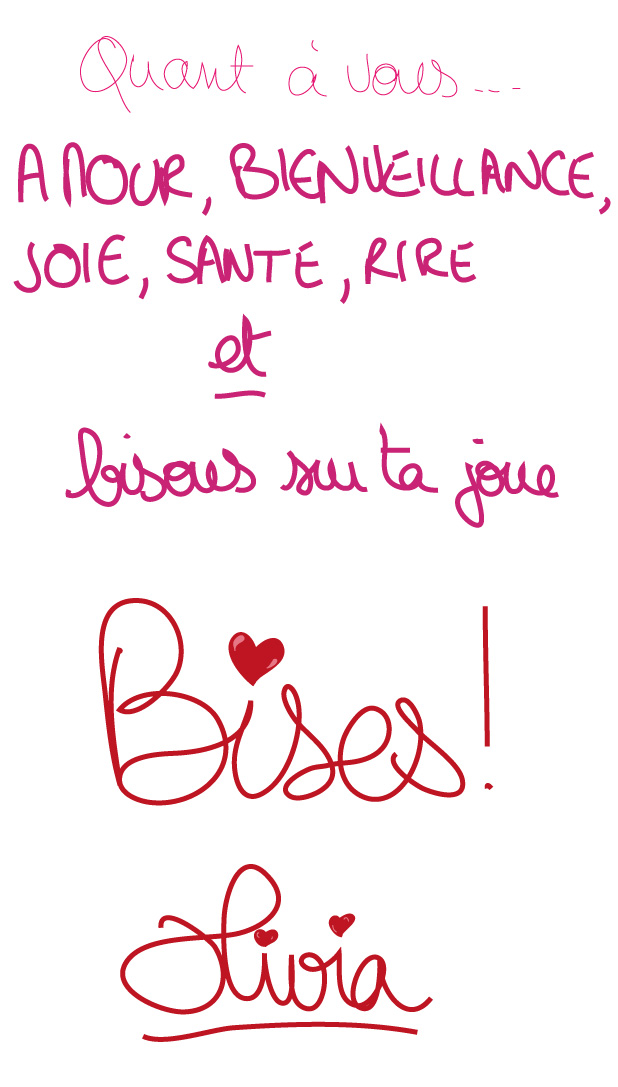 Quant à vous...
AMOUR, BIENVEILLANCE,
JOIE, SANTÉ, RIRE
et
bisous sur ta joue
Bises!
Olivia